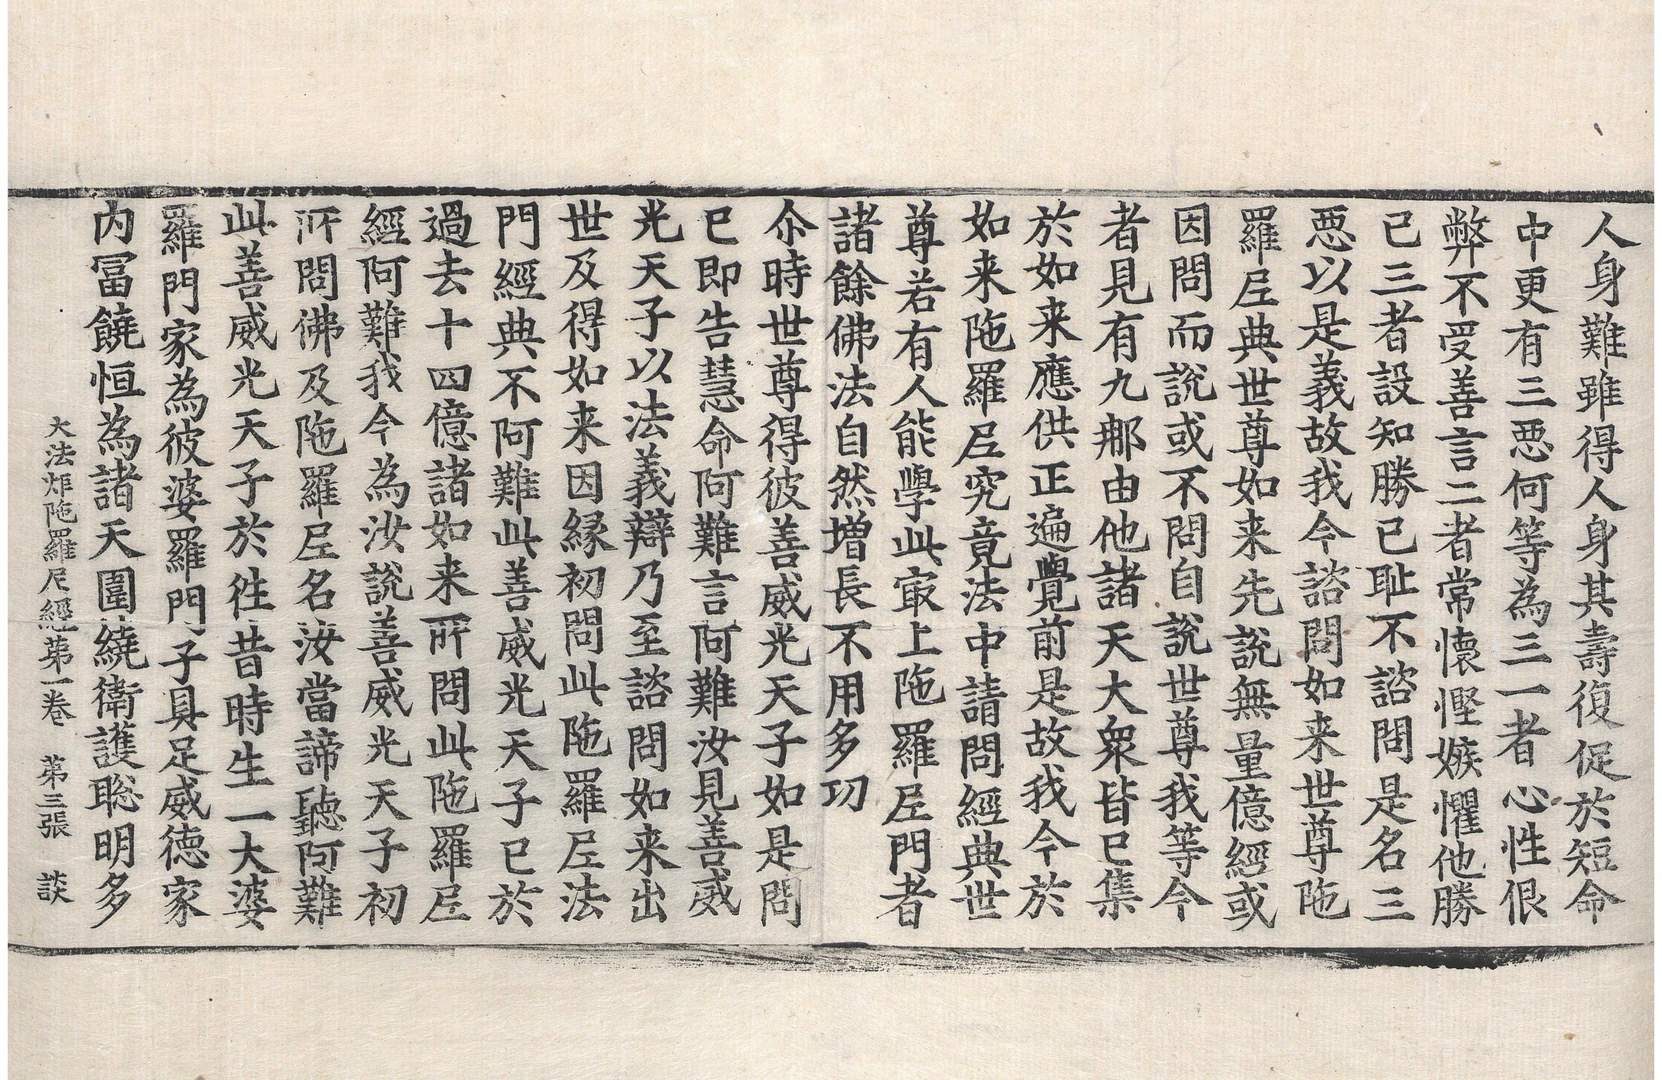 人身難雖得人身其壽復促於短命
中更有三惡何等為三一者心性佷
弊不受善言二者常懷慳嫉懼他勝
已三者設知勝已耻不諮問是名三
惡以是義故我今諮問如来世尊陁
羅𡰱典世尊如来先說無量億經或
因問而說或不問自說世尊我等今
者見有九那由他諸天大衆皆已集
於如来應供正遍覺前是故我今於
如来陁羅𡰱究竟法中請問經典世
尊若有人能學此冣上陁羅𡰱門者
諸餘佛法自然增長不用多功
尒時世尊得彼善威光天子如是問
已即告慧命阿難言阿難汝見善威
光天子以法義辯乃至諮問如来出
世及得如来因緣初問此陁羅𡰱法
門經典不阿難此善威光天子已於
過去十四億諸如来所問此陁羅𡰱
經阿難我今為汝說善威光天子初
所問佛及陁羅𡰱名汝當諦聽阿難
此善威光天子於徃昔時生一大婆
羅門家為彼婆羅門子具足威德家
内冨饒恒為諸天圍繞衛護聡明多
大法炬陁羅尼經苐一卷　苐三張　談